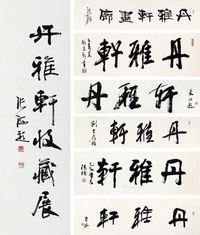 丹雅軒收藏展
丹雅軒畫廊
丹雅軒
丹雅軒
丹雅軒
丹雅軒
丹雅軒